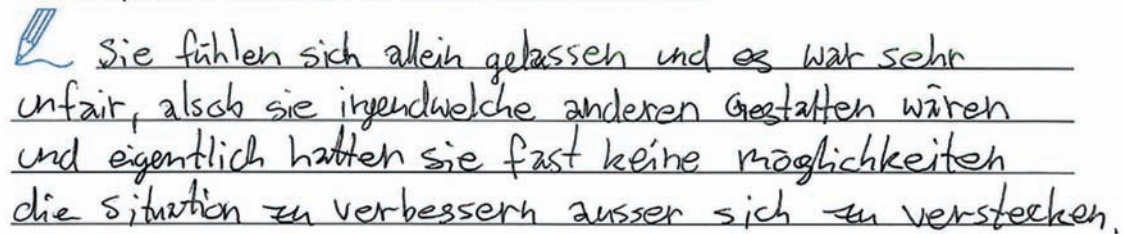 Sie fühlen sich allein gelassen und es war sehr
unfair, alsob sie irgendwelche anderen Gestalten wären
und eigentlich hatten sie fast keine möglichkeiten
die Situation zu verbessern ausser sich zu verstecken.